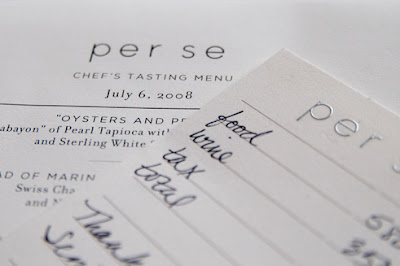 per se
CHEF'S TASTING MENU
July 6, 2008
"OYSTERS AND PE
abayon" of Pearl Tapioca with
and Sterling White
AD OF MARIN
Swiss Cha
and
per se
food
wine
tax
total
Thank